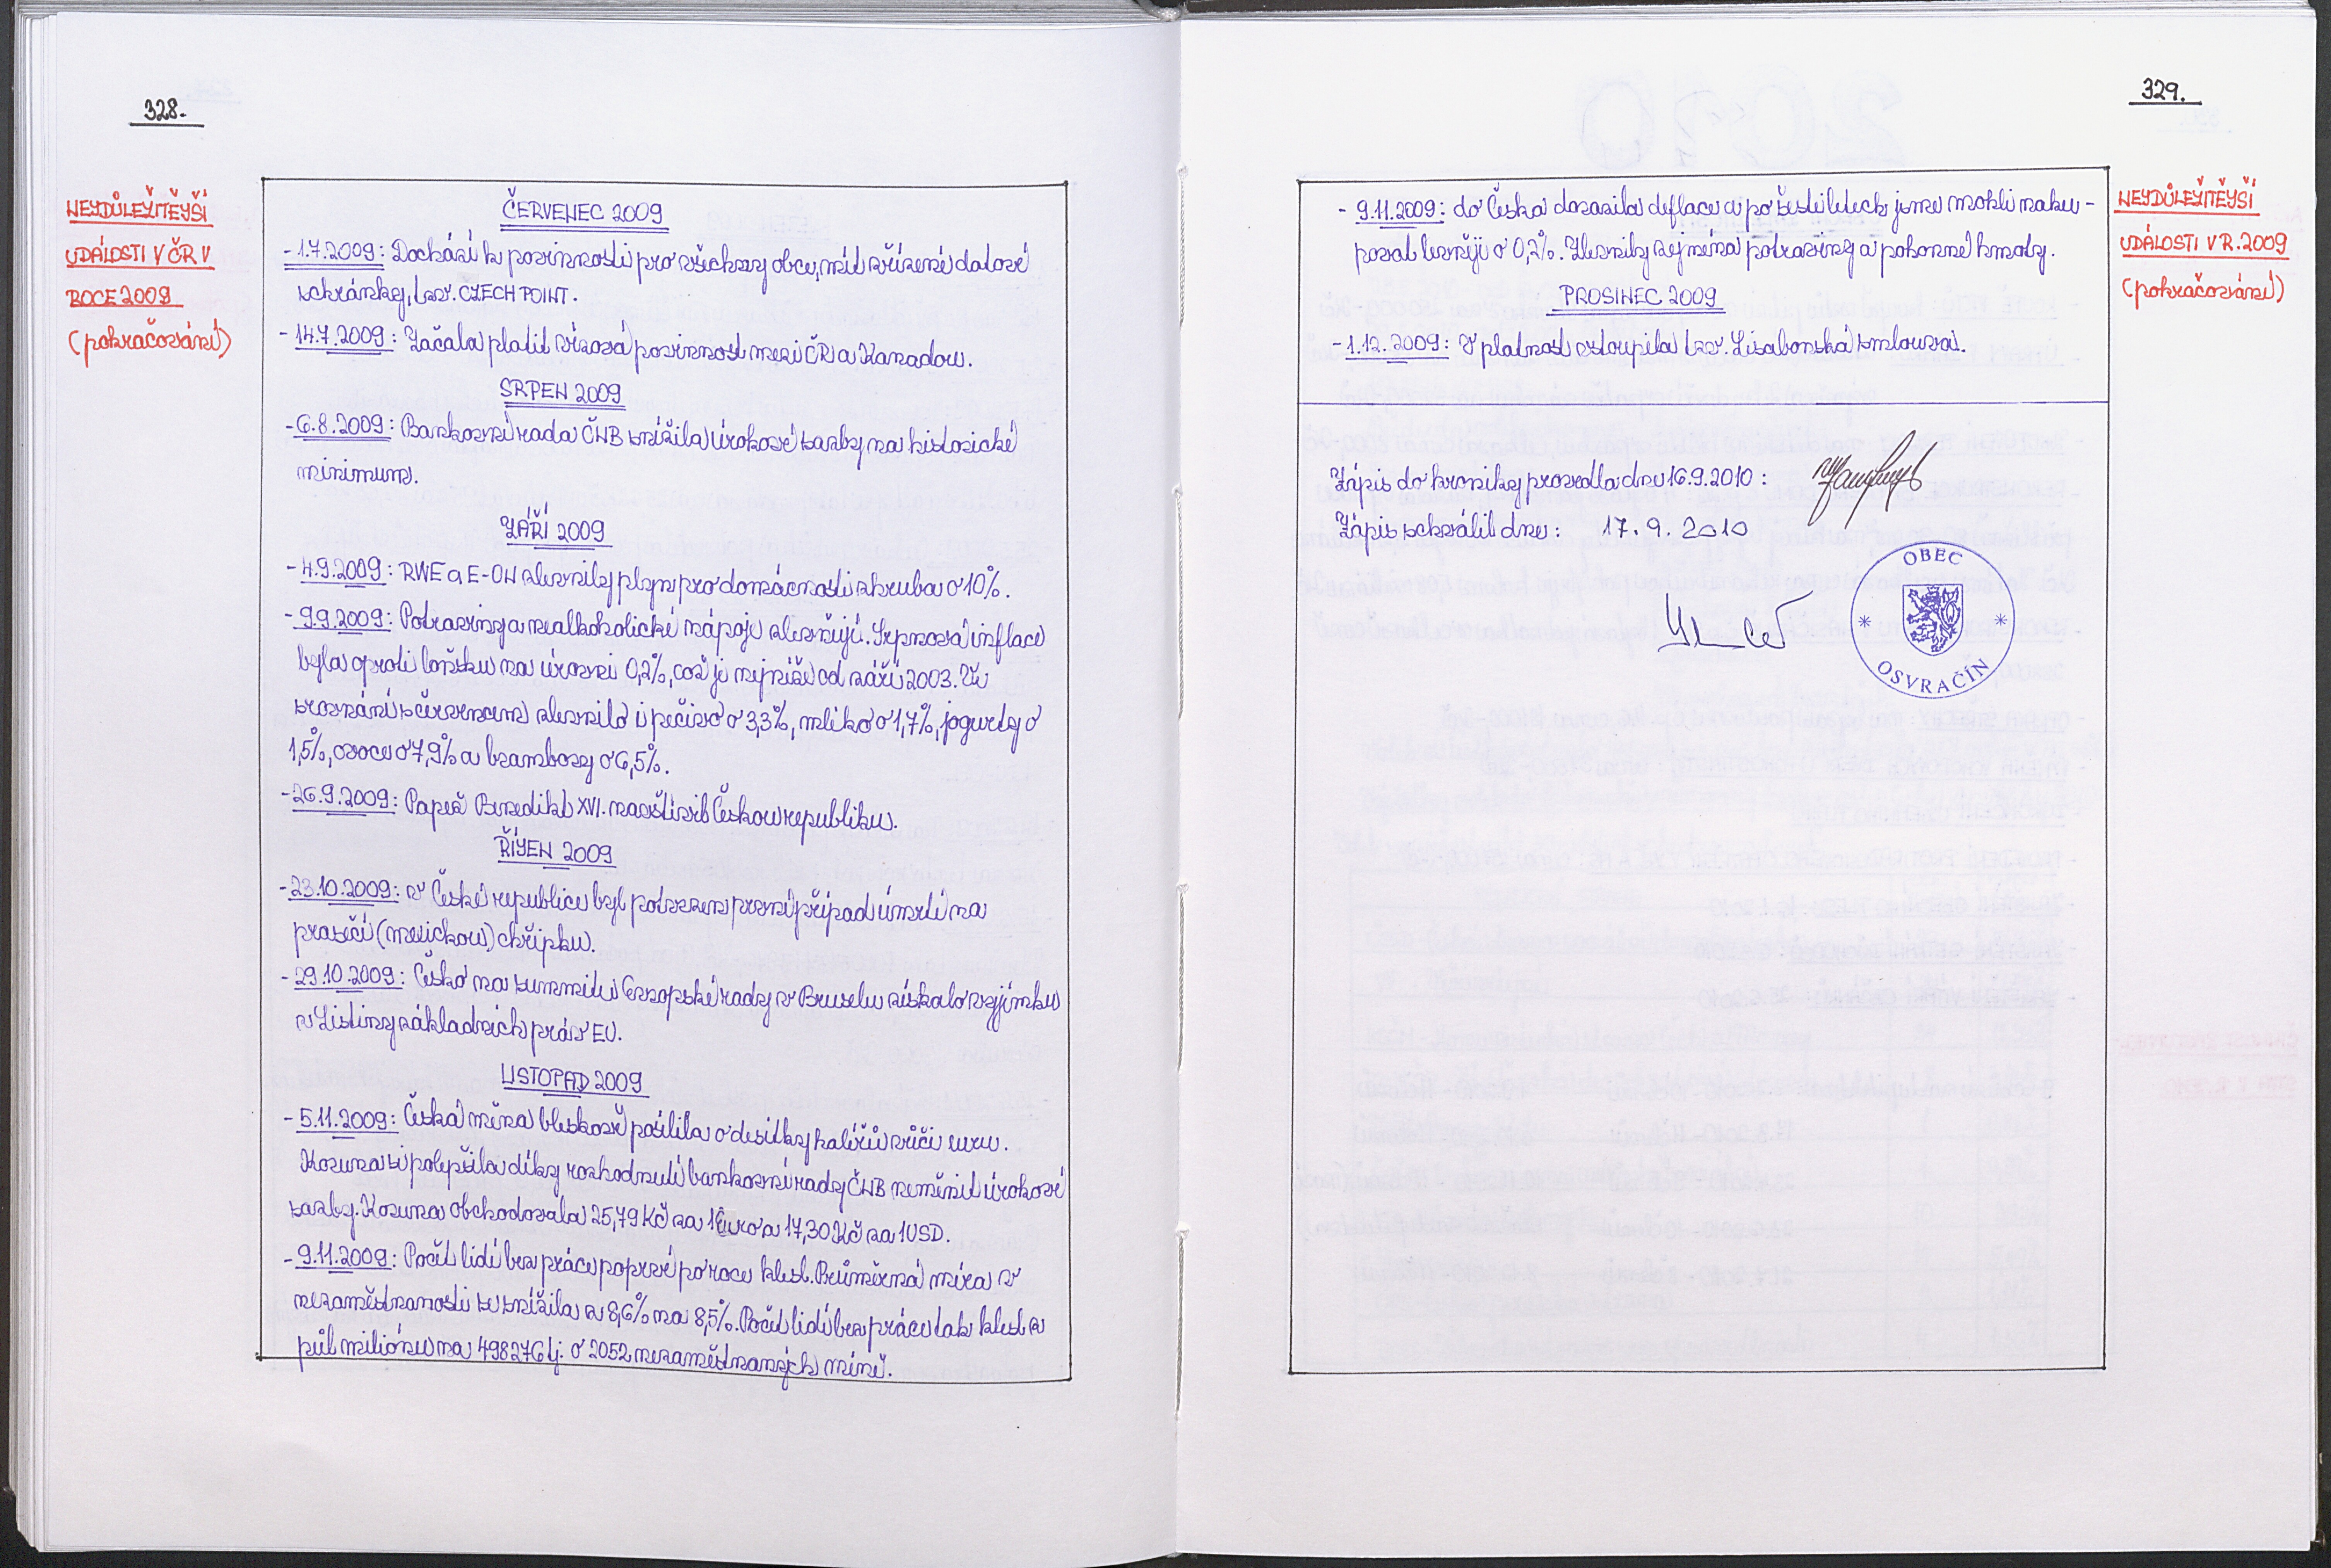 328.
NEJDŮLEŽITĚJŠÍ
UDÁLOSTI V ČR V
ROCE 2009
(pokračování)
ČERVENEC 2009
- 1.7.2009: Dochází k povinnosti pro všechny obce, mít zřízené datové
schránky, tzv. CZECH POINT.
- 14.7.2009: Začala platit vízová povinnost mezi ČR a Kanadou.
SRPEN 2009
- 6.8.2009: Bankovní rada ČNB snížila úrokové sazby na historické
minimum.
ZÁŘÍ 2009
- 4.9.2009: RWE a E-ON zlevnily plyn pro domácnosti zhruba o 10%.
- 9.9.2009: Potraviny a nealkoholické nápoje zlevňují. Srpnová inflace
byla oproti loňsku na úrovni 0,2%, což je nejníže od září 2003. Ve
srovnání s červencem zlevnilo i pečivo o 3,3%, mléko o 1,7%, jogurty o
1,5%, ovoce o 7,9% a brambory o 6,5%.
- 26.9.2009: Papež Benedikt XVI. navštívil Českou republiku.
ŘÍJEN 2009
- 23.10.2009: v České republice byl potvrzen první případ úmrtí na
prasečí (mexickou) chřipku.
- 29.10.2009: Česko na summitu Evropské rady v Bruselu získalo výjimku
z Listiny základních práv EU.
LISTOPAD 2009
- 5.11.2009: Česká měna bleskově posílila o desítky haléřů vůči euru.
Koruna si polepšila díky rozhodnutí bankovní rady ČNB neměnit úrokové
sazby. Koruna obchodovala 25,79 Kč za 1 Euro a 17,30 Kč za 1 USD.
- 9.11.2009: Počet lidí bez práce poprvé po roce klesl. Průměrná míra v
nezaměstnanosti se snížila z 8,6% na 8,5%. Počet lidí bez práce tak klesl z
půl miliónu na 498 276 tj. o 2052 nezaměstnaných méně.
329.
NEJDŮLEŽITĚJŠÍ
UDÁLOSTI V R. 2009
(pokračování)
- 9.11.2009: do Česka dorazila deflace a po šesti letech jsme mohli naku-
povat levněji o 0,2%. Zlevnily zejména potraviny a pohonné hmoty.
PROSINEC 2009
- 1.12.2009: V platnost vstoupila tzv. Lisabonská smlouva.
Zápis do kroniky provedla dne 16.9.2010:
Zápis schválil dne: 17.9.2010
OBEC
OSVRAČÍN